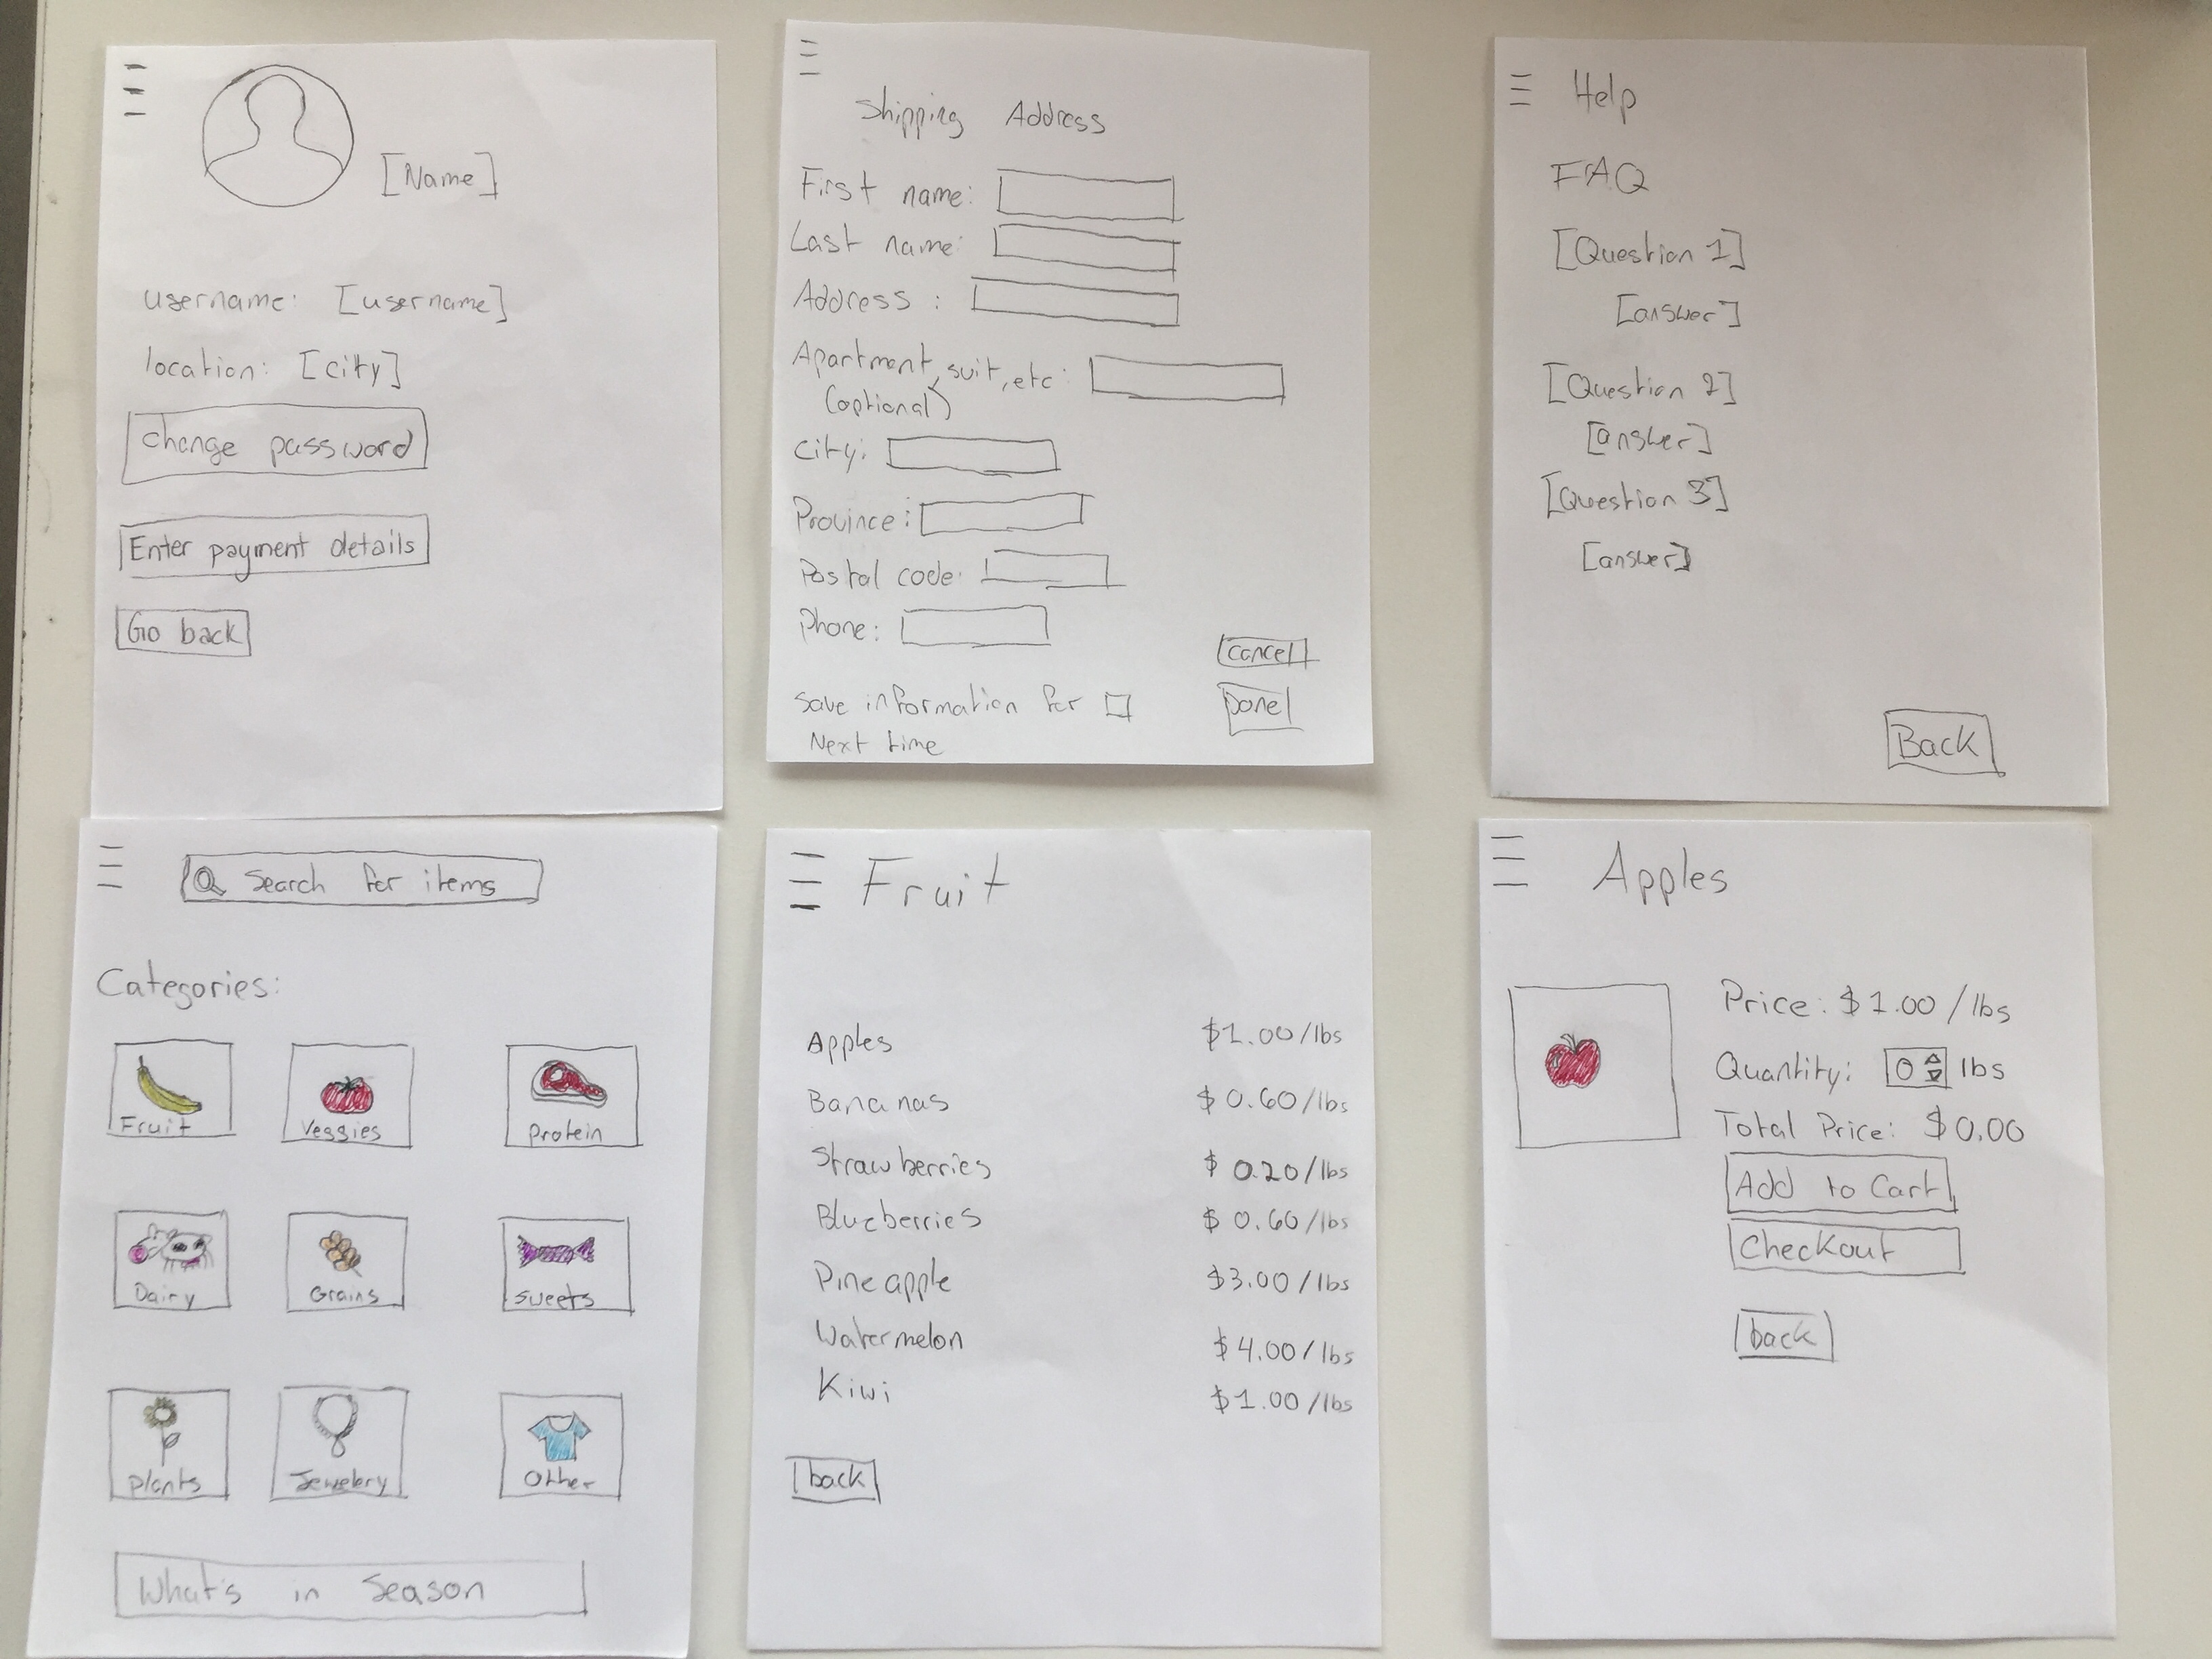 [Name]
username: [username]
location: [city]
change password
Enter payment details
Go back
Shipping Address
First name:
Last name:
Address :
Apartment, suit, etc:
(optional)
City:
Province:
Postal code:
Phone:
cancel
Save information for
Done
Next time
Help
FAQ
[Question 1]
[answer]
[Question 2]
[answer]
[Question 3]
[answer]
Back
Search for items
Categories:
Fruit Veggies Protein
Dairy Grains Sweets
plants Jewelery Other
What's in Season
Fruit
Apples $1.00/lbs
Bananas $0.60/lbs
Strawberries $0.20/lbs
Blueberries $0.60/lbs
Pineapple $3.00/lbs
Watermelon $4.00/lbs
Kiwi $1.00/lbs
back
Apples
Price: $1.00/lbs
Quantity: 0 lbs
Total Price: $0.00
Add to Cart
Checkout
back